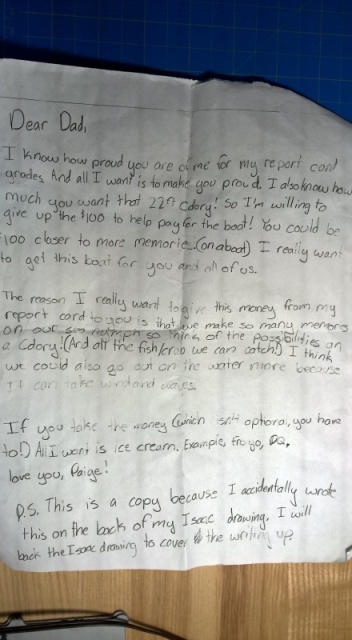 Dear Dad,
I know how proud you are of me for my report card
grades. And all I want is to make you proud. I also know how
much you want that 22ft Cdory! So I'm willing to
give up the $100 to help pay for the boat! You could be
$100 closer to more memories (on a boat) I really want
to get this boat for you and all of us.
The reason I really want to give this money from my
report card to you is that we make so many memories
on our so think of the possibilities on
a Cdory! (And all the fish/crab we can catch!) I think
we could also go out on the water more because
it can take wind and waves.
If you take the money (which isn't optional, you have
to!) All I want is ice cream. Example, fro yo, DQ.
love you, Paige!
P.S. This is a copy because I accidentally wrote
this on the back of my Isaac drawing. I will
back the Isaac drawing to cover the writing up